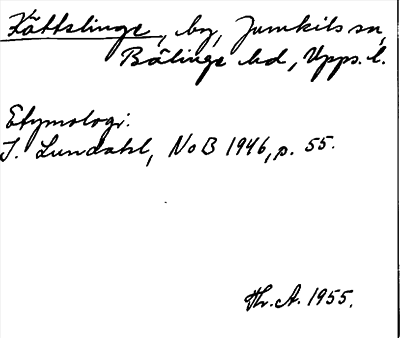 Kättslinge, by, Jumkils sn,
Bälinge hd, Upps. l.
Etymologi:
I. Lundahl, NoB 1946, p. 55.
Hr. A. 1955.